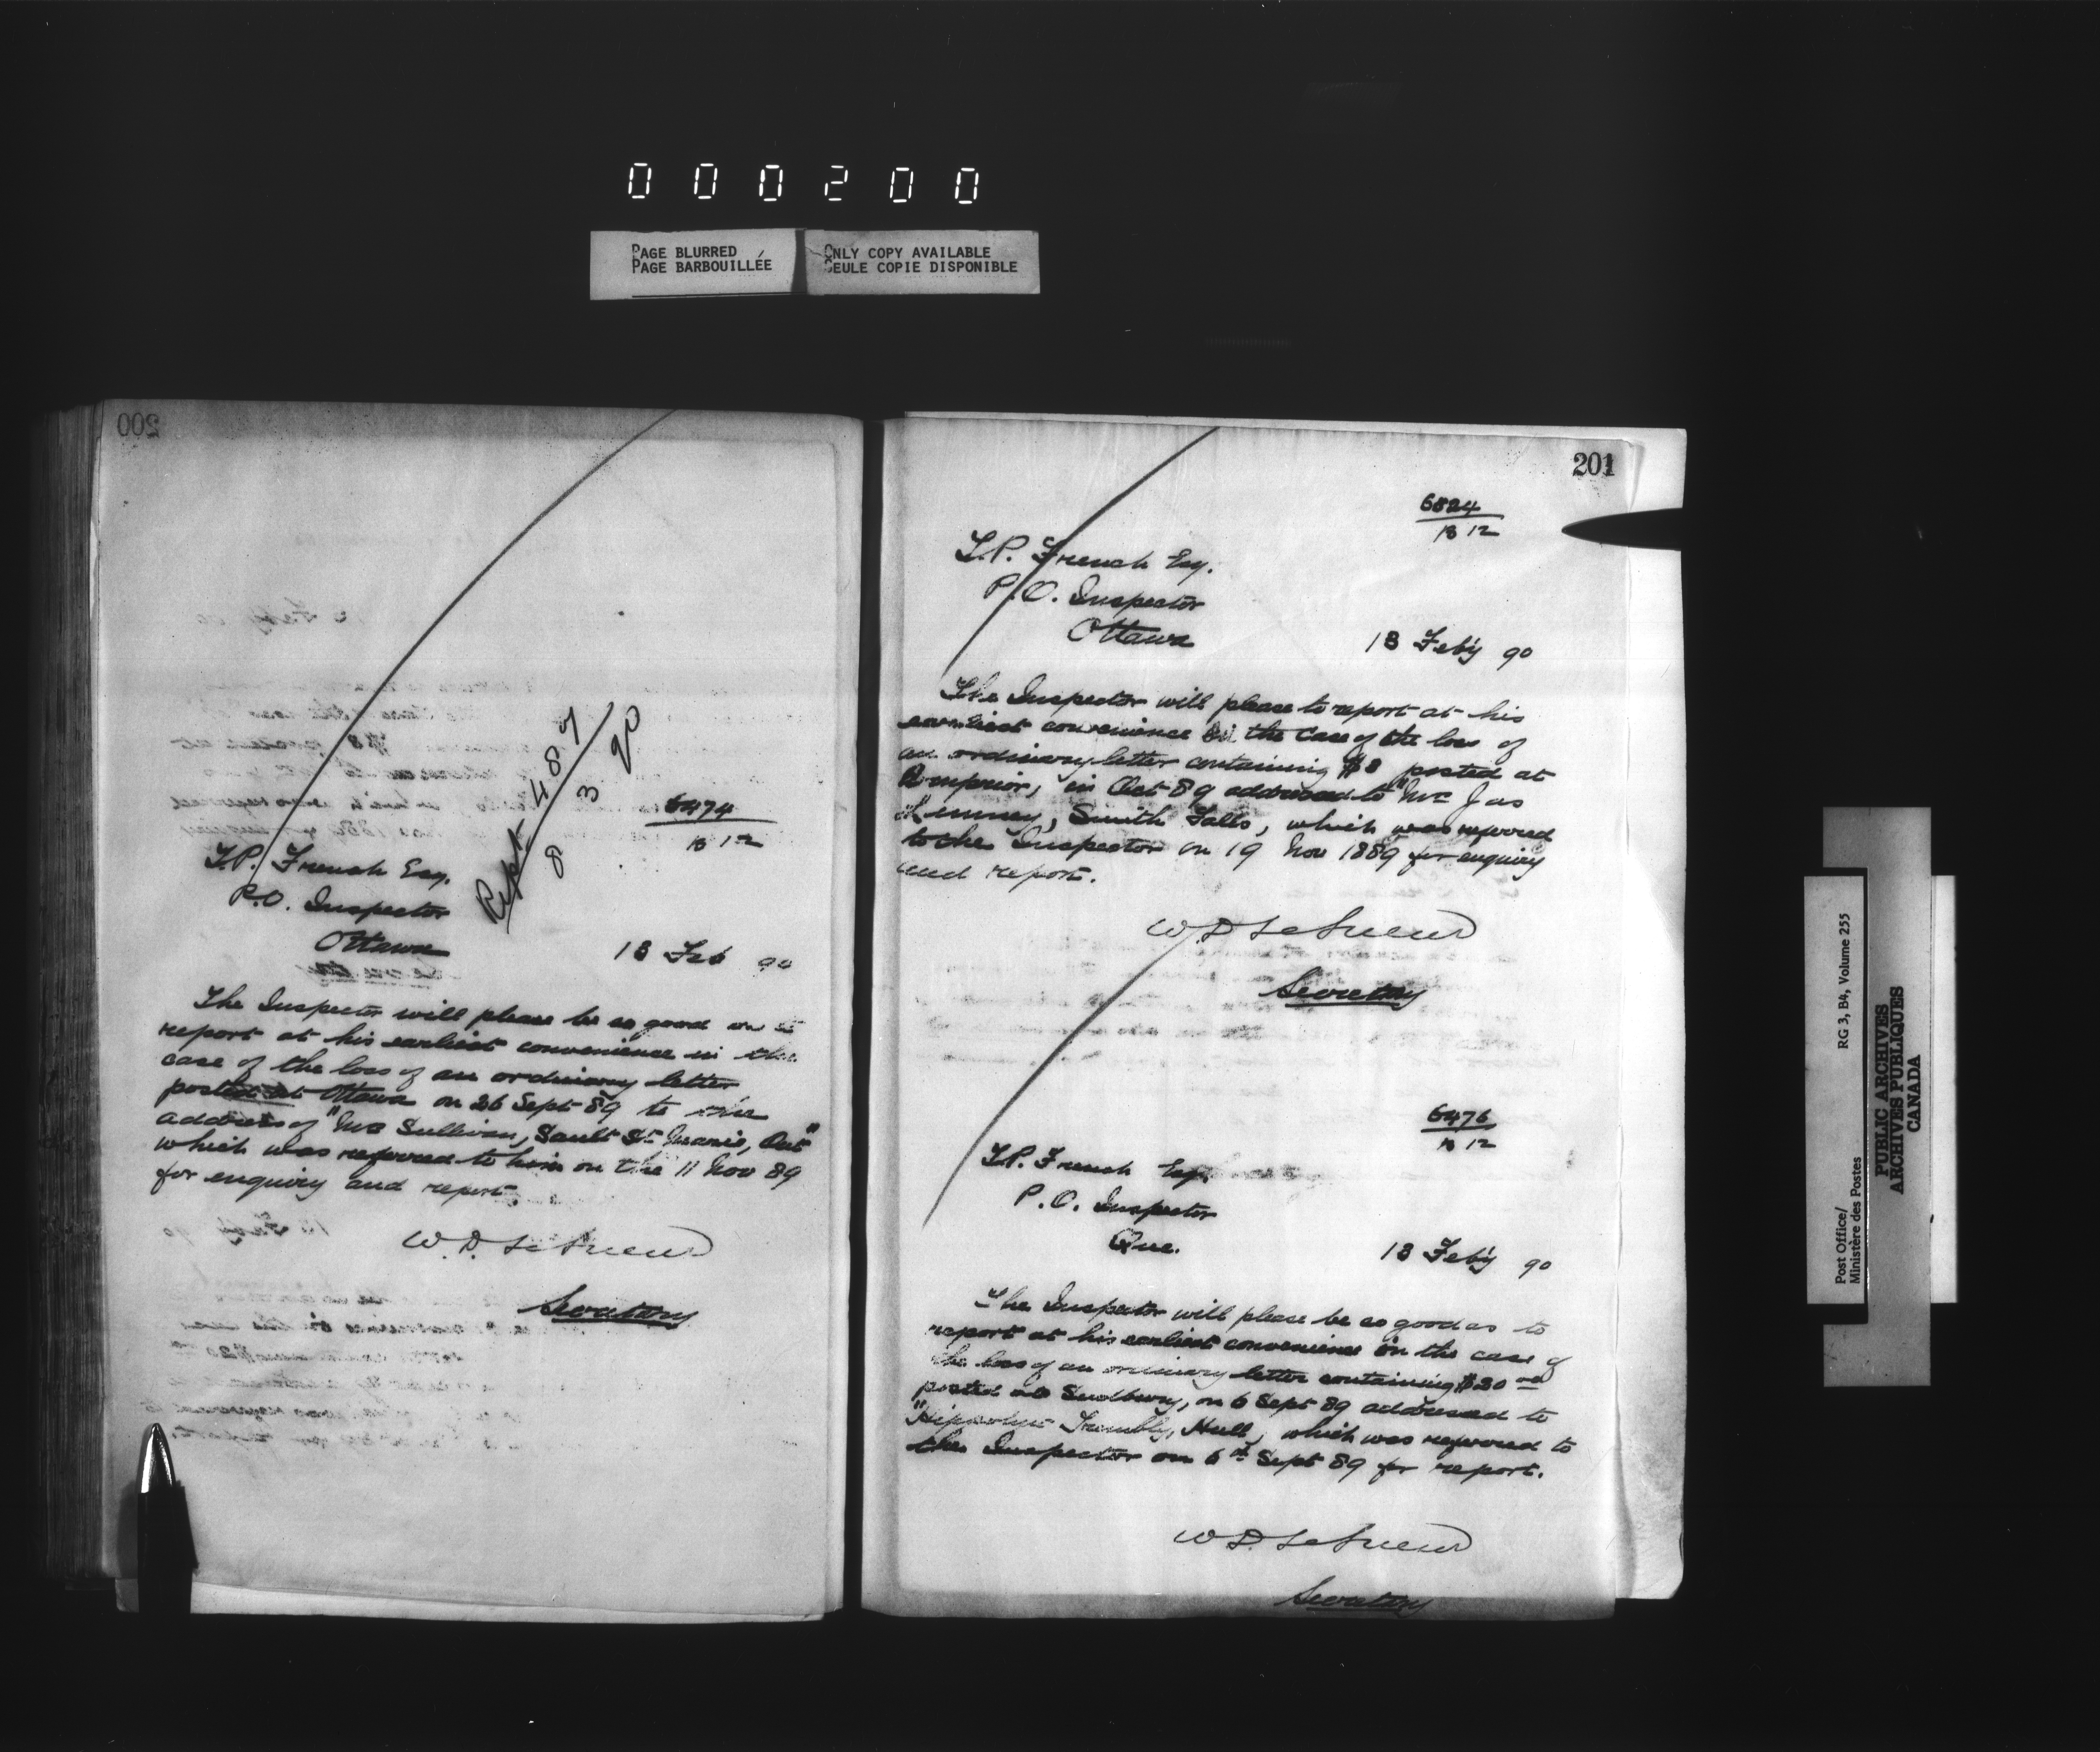 000200
PAGE BLURRED
PAGE BARBOUILLÉE
ONLY COPY AVAILABLE
SEULE COPIE DISPONIBLE
200
Rept 487
8 3 90
6474
B 12
T.P. French Esq.
P.O. Inspector
Ottawa
13 Feb 90
The Inspector will please be so good as to
report at his earliest convenience in the
case of the loss of an ordinary letter
posted at Ottawa on 26 Sept 89 to the
address of "Mrs Sullivan, Sault Ste Marie, Ont"
which was referred to him on the 11 Nov 89
for enquiry and report.
W.D. LeSueur
Secretary
201
6824
B 12
T.P. French Esq.
P.O. Inspector
Ottawa
13 Feby 90
The Inspector will please to report at his
earliest convenience in the case of the loss of
an ordinary letter containing $8 posted at
in Oct 89 addressed to "Mr Jas
Smith Falls, which was referred
to the Inspector on 19 Nov 1889 for enquiry
and report.
W.D. LeSueur
Secretary
6476
B 12
T.P. French Esq.
P.O. Inspector
Que.
13 Feby 90
The Inspector will please be so good as to
report at his earliest convenience in the case of
the loss of an ordinary letter containing $20
posted at Sudbury, on 6 Sept 89 addressed to
Trembly, Hull, which was referred to
the Inspector on 6th Sept 89 for report.
W.D. LeSueur
Secretary
Post Office/
Ministère des Postes
RG 3, B4, Volume 255
PUBLIC ARCHIVES
ARCHIVES PUBLIQUES
CANADA